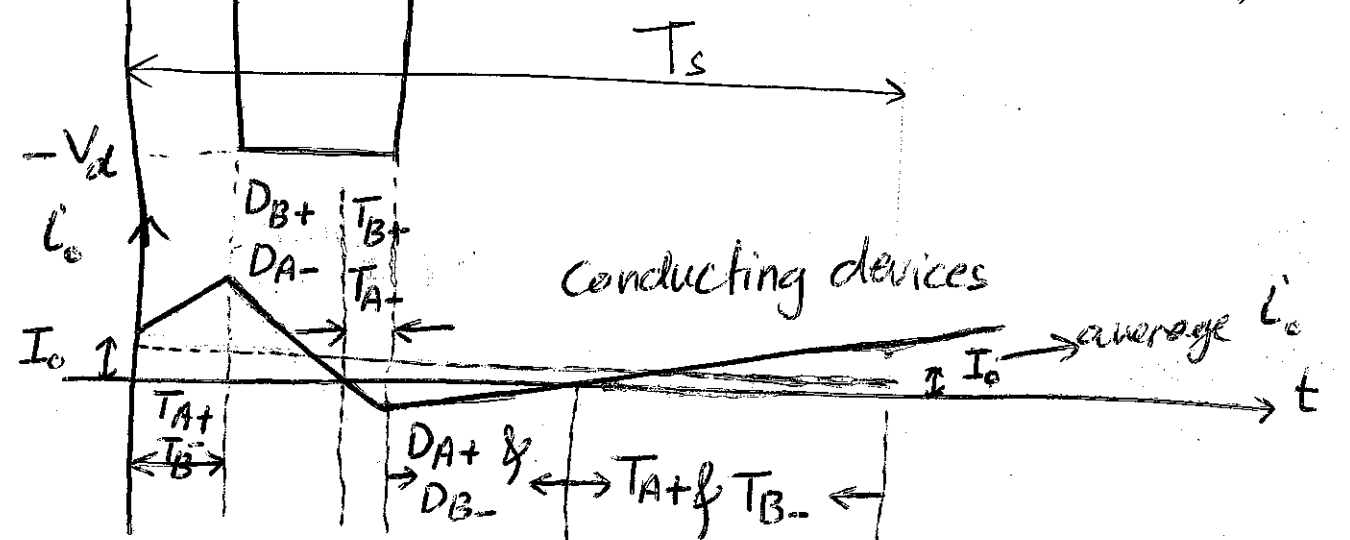 Ts
-Vd
DB+ TB+
DA- TA+
io
conducting devices
Io
Io → average io
t
TA+
TB-
DA+ &
DB-
TA+ & TB-